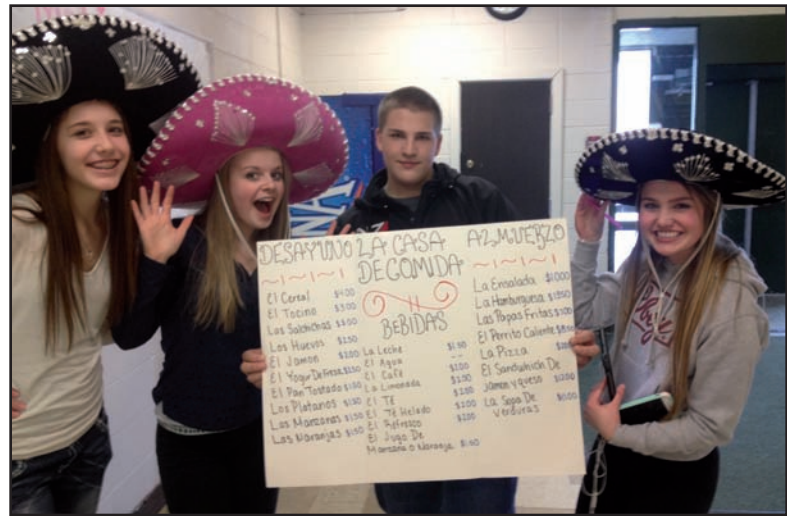 DESAYUNO
~1~1~1
El Cereal $4.00
El Tocino $3.00
Las Salchichas
Los Huevos $2.50
El Jamon $2.00
El Yogur De Fresa $2.50
El Pan Tostado $1.50
Los Platanos $1.50
Las Manzanas $1.50
Las Naranjas $1.50
LA CASA
DE COMIDA
BEBIDAS
La Leche $1.50
El Agua --
El Café $2.00
La Limonada $2.50
El Té $2.50
El Té Helado $2.00
El Refresco $2.00
El Jugo De
Manzana o Naranja $1.50
ALMUERZO
~1~1~1
La Ensalada $10.00
La Hamburguesa
Las Papas Fritas
El Perrito Caliente
La Pizza
El Sandwhich De
jamon y queso $12.00
La Sopa De
verduras
NA